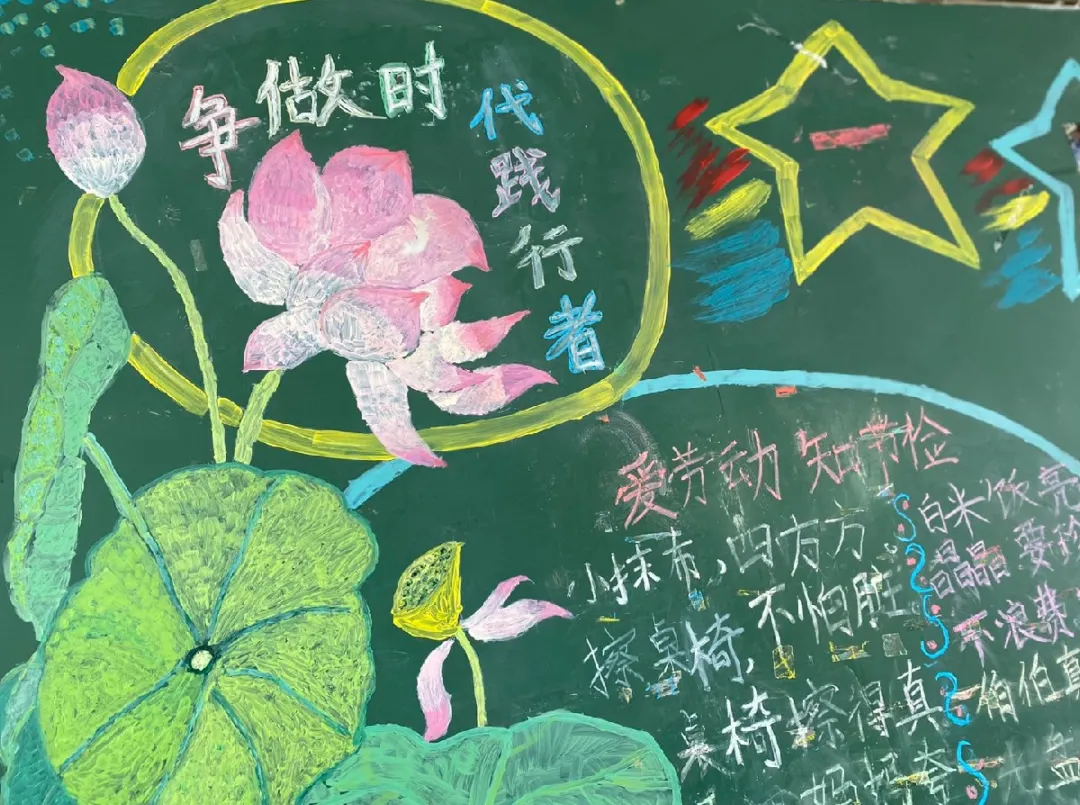 争做时代践行者
一
爱劳动 知节检
小抹布,四方方
擦桌椅,不怕脏
桌椅擦得真
妈妈夸
白米饭亮
晶晶
不浪费
伯伯真